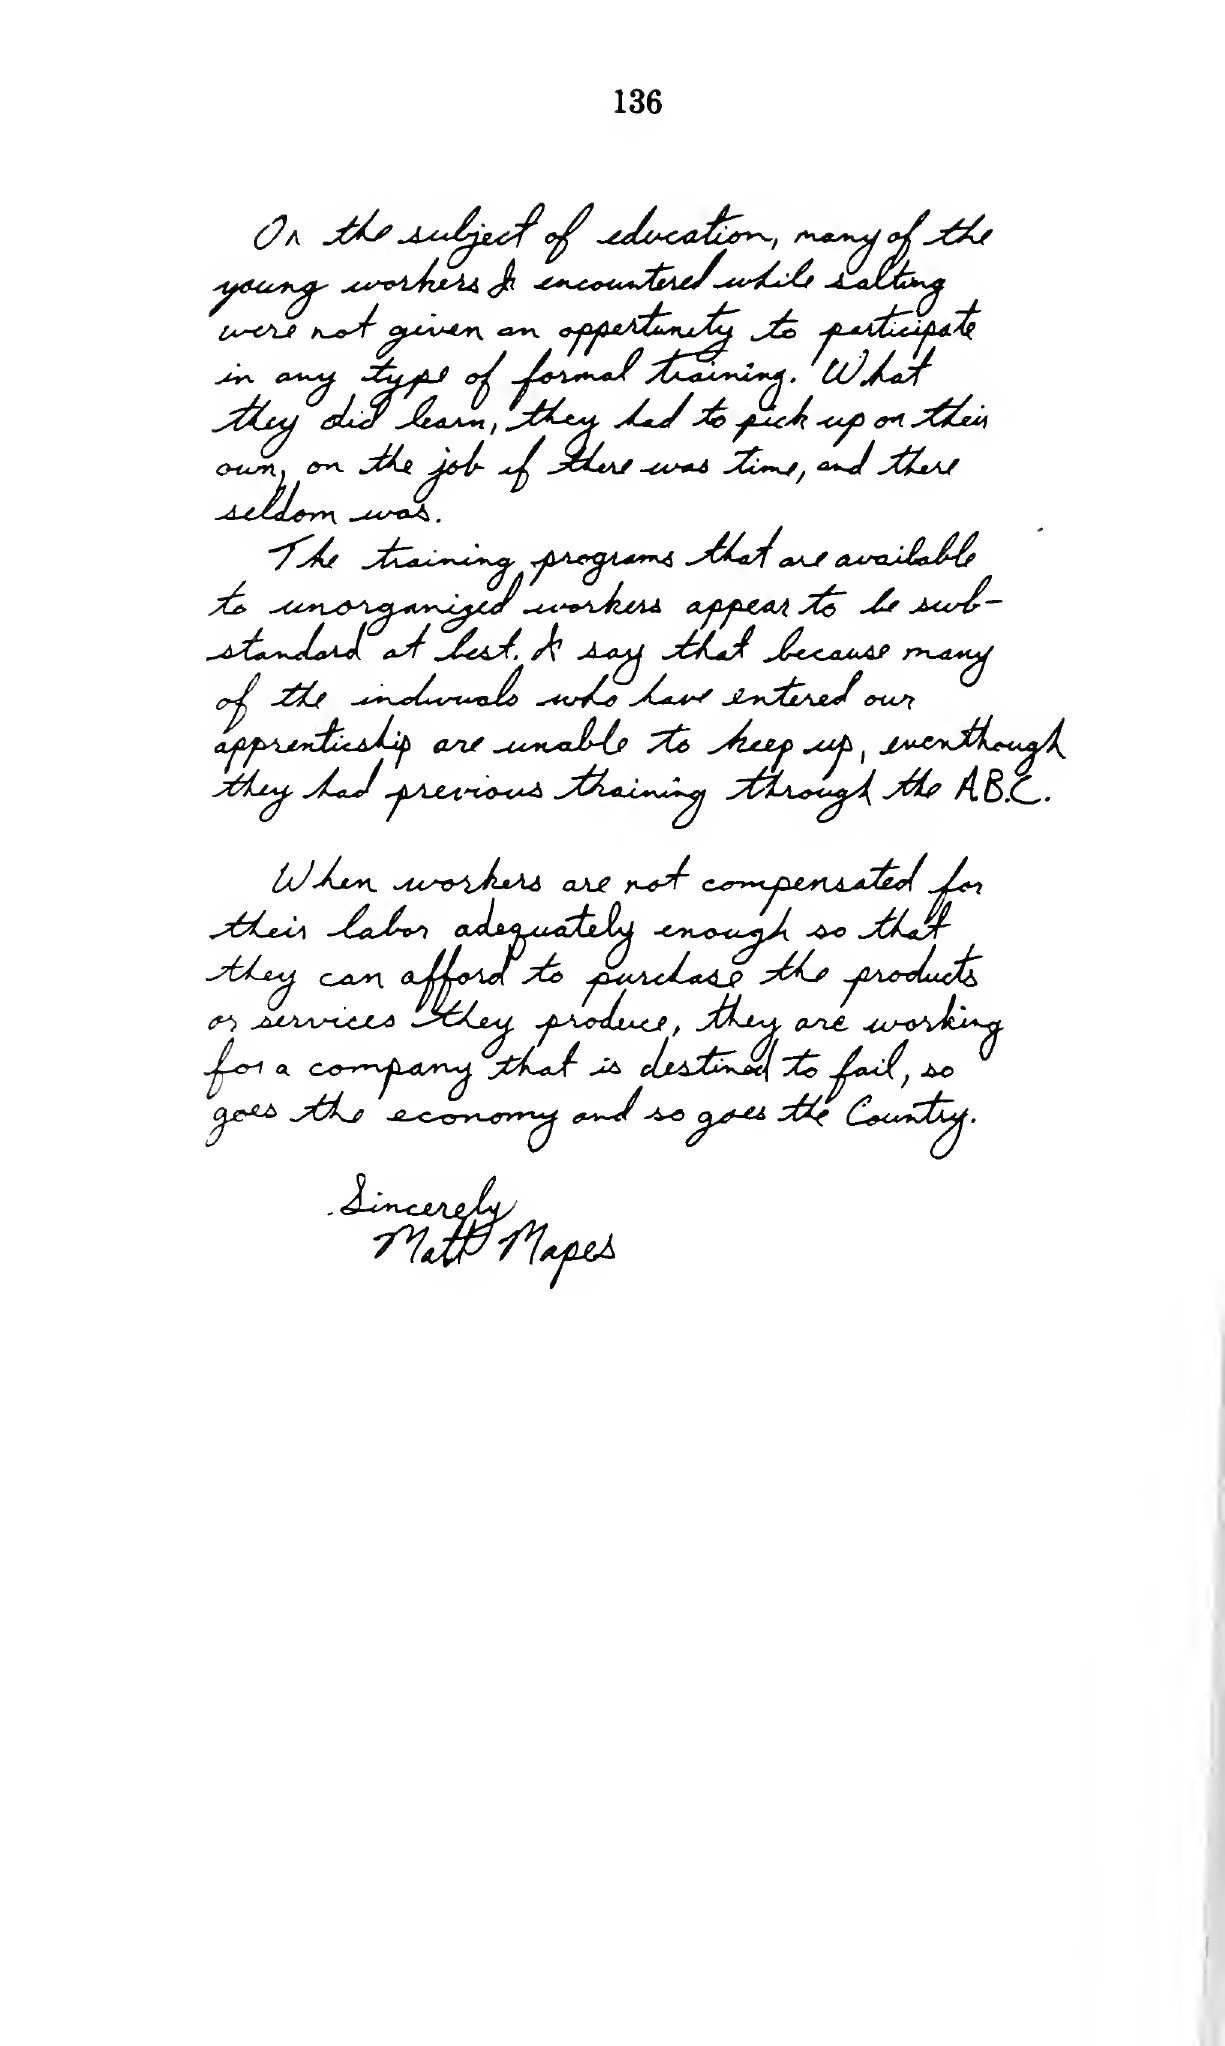 136
On the subject of education, many of the
young workers I encountered while salting
were not given an oppertunity to participate
in any type of formal training. What
they did learn, they had to pick up on their
own, on the job if there was time, and there
seldom was.
The training programs that are available
to unorganized workers appear to be sub-
standard at best. I say that because many
of the indivuals who have entered our
apprenticship are unable to keep up, eventhough
they had previous training through the A.B.C.
When workers are not compensated for
their labor adequately enough so that
they can afford to purchase the products
or services they produce, they are working
for a company that is destined to fail, so
goes the economy and so goes the Country.
Sincerely
Matt Mapes